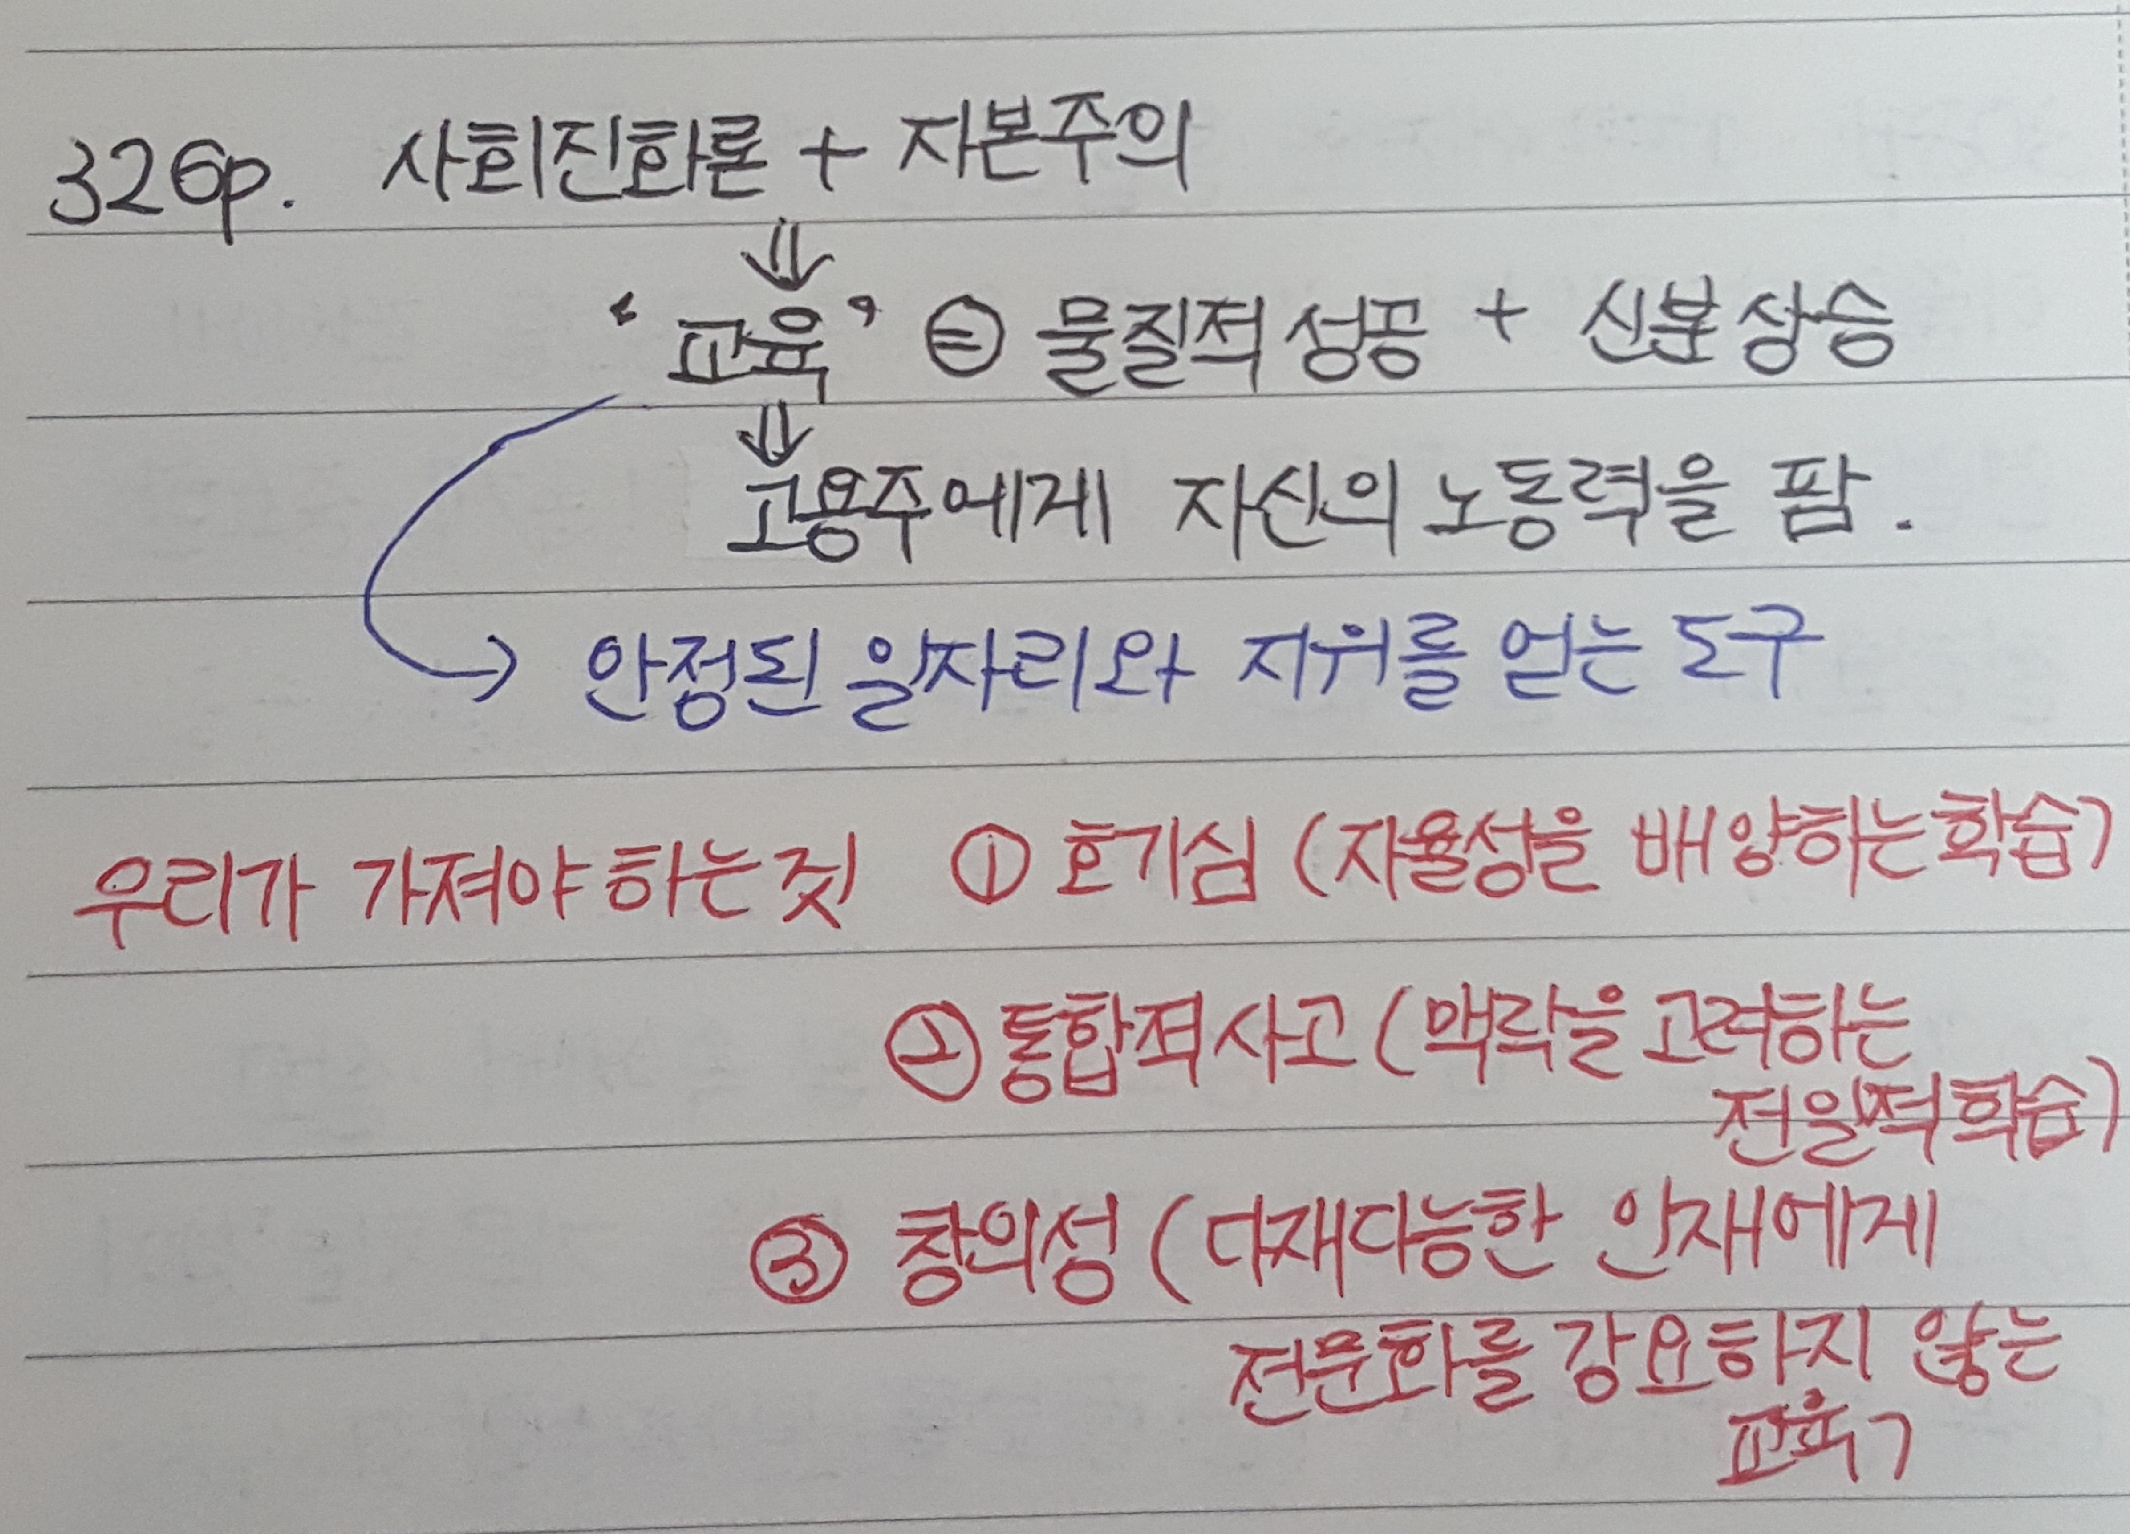 326p. 사회진화론 + 자본주의
⇓
"교육" ㊀ 물질적 성공 + 신분상승
⇓
고용주에게 자신의 노동력을 팜.
→ 안정된 일자리와 지위를 얻는 도구
우리가 가져야 하는 것 ① 호기심 (자율성을 배양하는 학습)
② 통합적 사고 (맥락을 고려하는
전일적 학습)
③ 창의성 (다재다능한 인재에게
전문화를 강요하지 않는
교육)